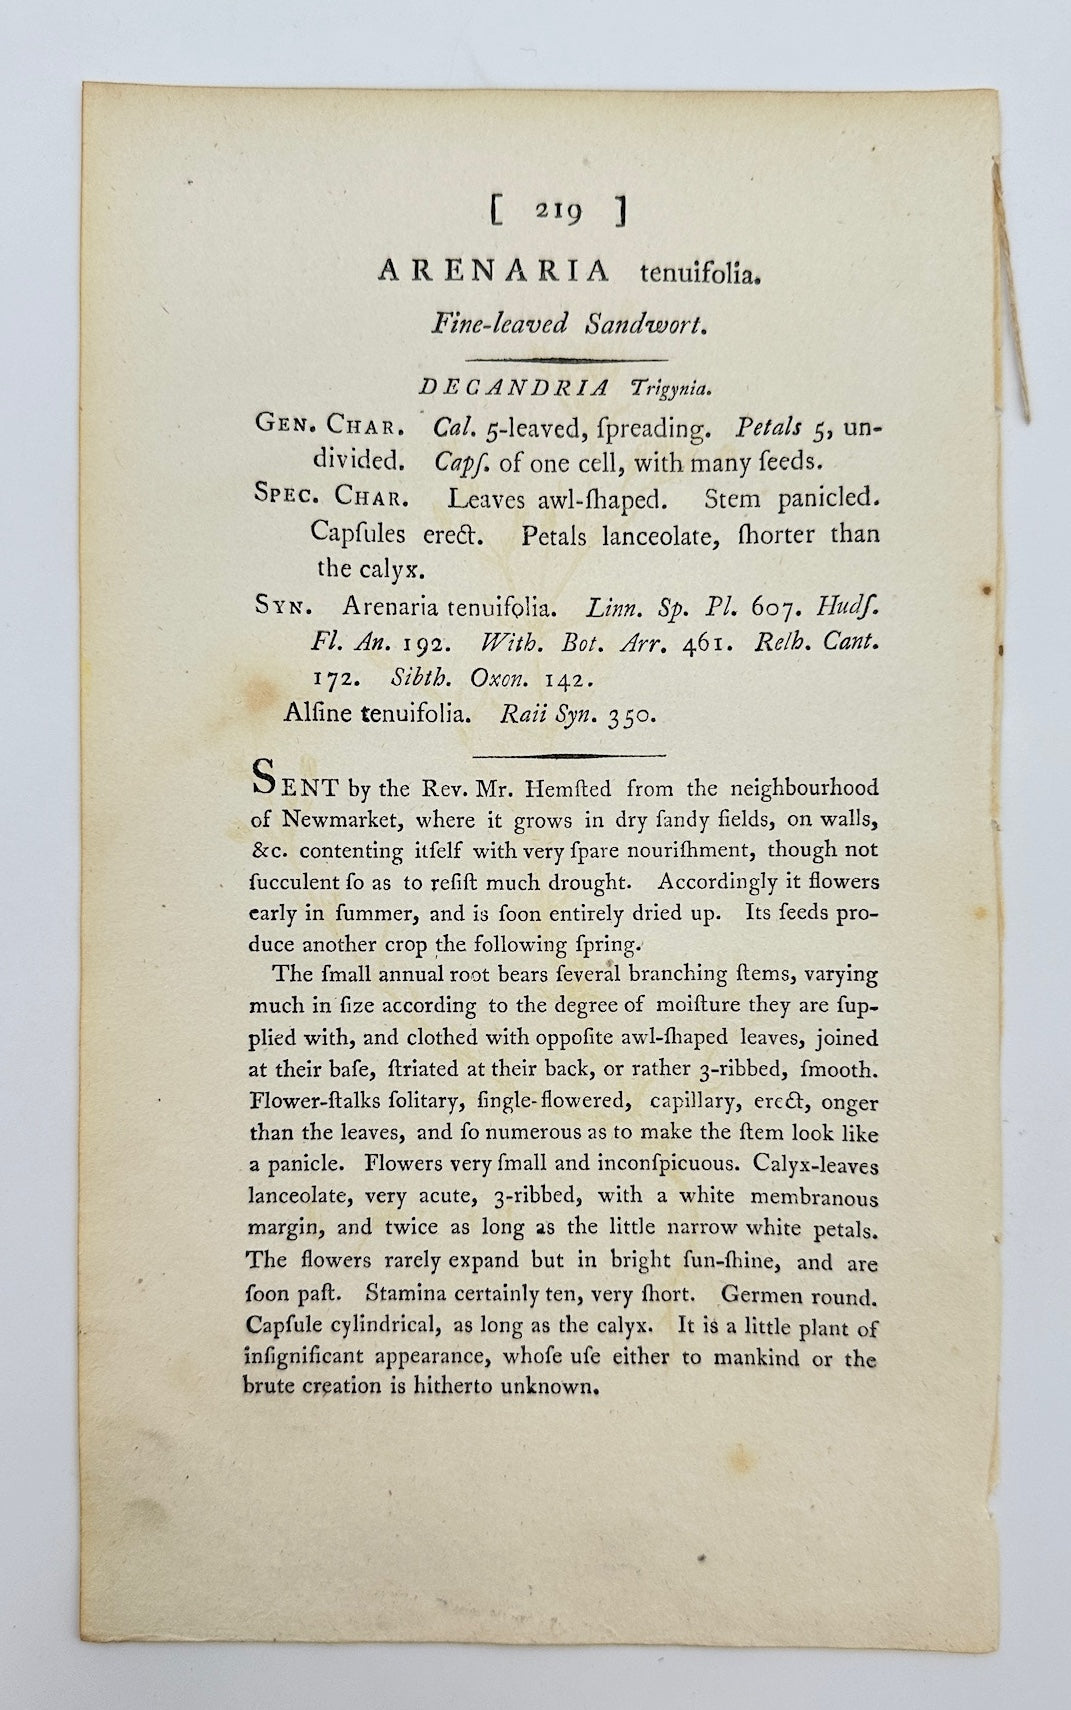 [ 219 ]
ARENARIA tenuifolia.
Fine-leaved Sandwort.
DECANDRIA Trigynia.
GEN. CHAR. Cal. 5-leaved, ſpreading. Petals 5, un-
divided. Capſ. of one cell, with many ſeeds.
SPEC. CHAR. Leaves awl-ſhaped. Stem panicled.
Capſules erect. Petals lanceolate, ſhorter than
the calyx.
SYN. Arenaria tenuifolia. Linn. Sp. Pl. 607. Hudſ.
Fl. An. 192. With. Bot. Arr. 461. Relh. Cant.
172. Sibth. Oxon. 142.
Alſine tenuifolia. Raii Syn. 350.
SENT by the Rev. Mr. Hemſted from the neighbourhood
of Newmarket, where it grows in dry ſandy fields, on walls,
&c. contenting itſelf with very ſpare nouriſhment, though not
ſucculent ſo as to reſiſt much drought. Accordingly it flowers
early in ſummer, and is ſoon entirely dried up. Its ſeeds pro-
duce another crop the following ſpring.
The ſmall annual root bears ſeveral branching ſtems, varying
much in ſize according to the degree of moiſture they are ſup-
plied with, and clothed with oppoſite awl-ſhaped leaves, joined
at their baſe, ſtriated at their back, or rather 3-ribbed, ſmooth.
Flower-ſtalks ſolitary, ſingle-flowered, capillary, erect, onger
than the leaves, and ſo numerous as to make the ſtem look like
a panicle. Flowers very ſmall and inconſpicuous. Calyx-leaves
lanceolate, very acute, 3-ribbed, with a white membranous
margin, and twice as long as the little narrow white petals.
The flowers rarely expand but in bright ſun-ſhine, and are
ſoon paſt. Stamina certainly ten, very ſhort. Germen round.
Capſule cylindrical, as long as the calyx. It is a little plant of
inſignificant appearance, whoſe uſe either to mankind or the
brute creation is hitherto unknown.